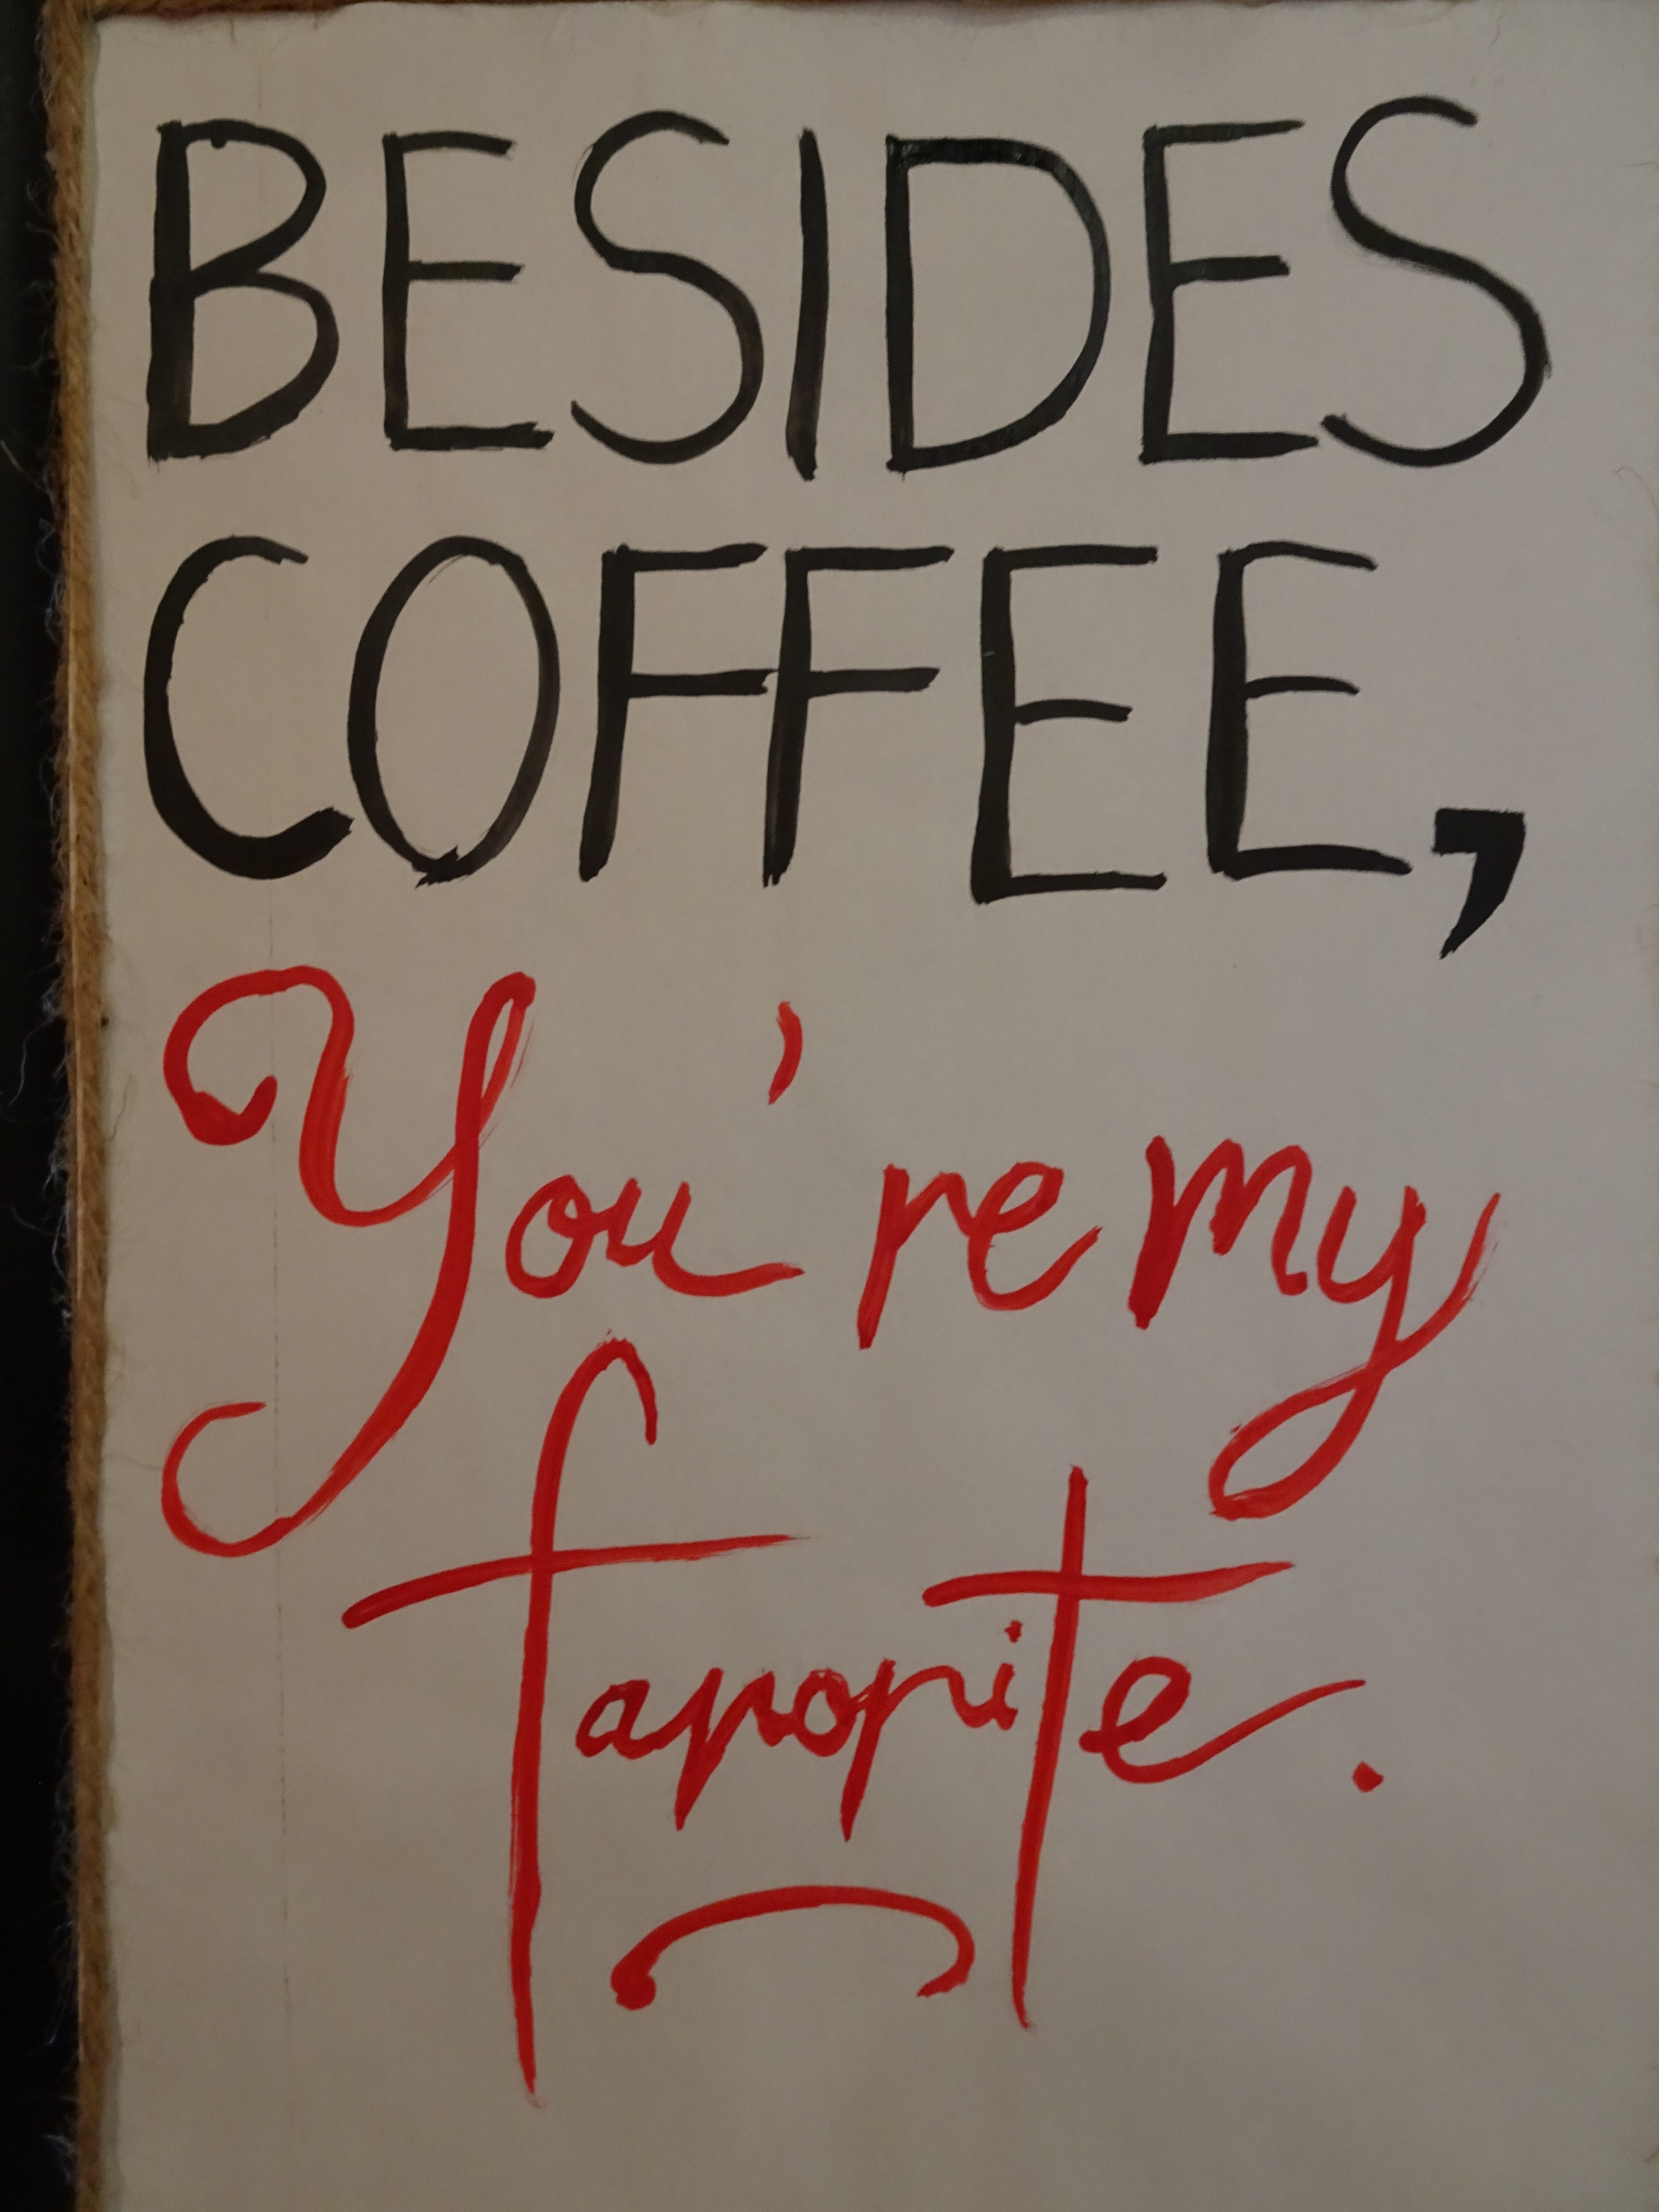 BESIDES
COFFEE,
You're my
favorite.